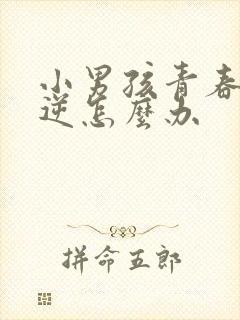 小男孩青春
逆怎麼办
拼命五郎